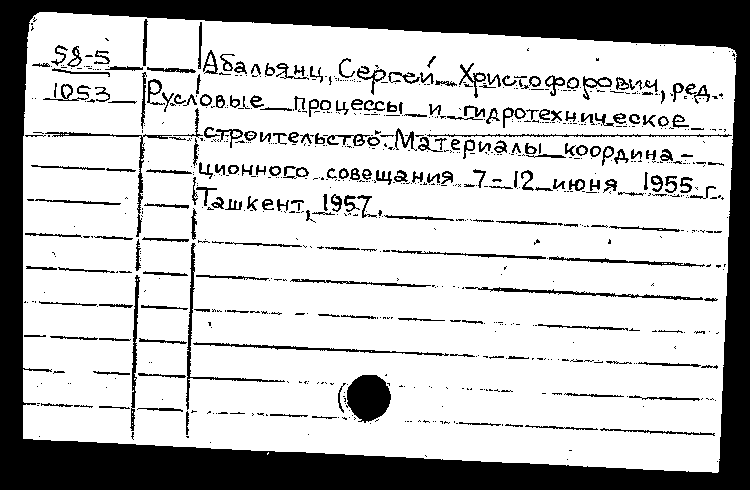 58-5 Абальянц, Сергей Христофорович, ред.
1053 Русловые процессы и гидротехническое
строительство. Материалы координа-
ционного совещания 7-12 июня 1955 г.
Ташкент, 1957.